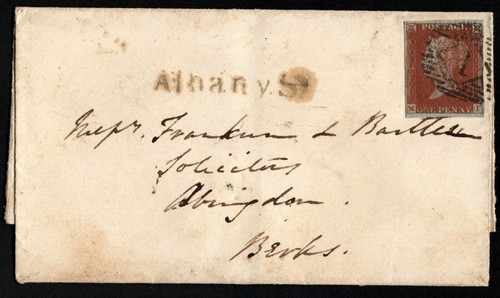 POSTAGE
ONE PENNY
Albany St
Messrs. Frankum & Bartlett
Solicitors
Abingdon.
Berks.